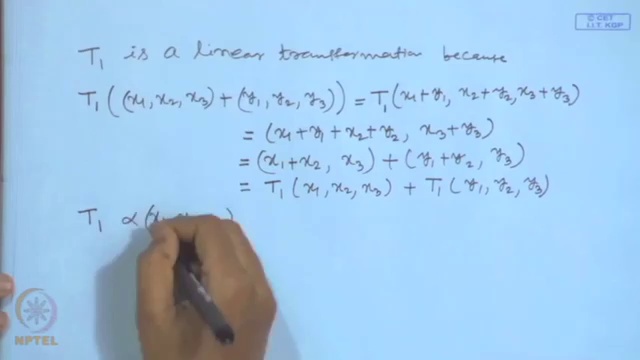 © CET
I.I.T. KGP
T₁ is a linear transformation because
T₁((x₁, x₂, x₃) + (y₁, y₂, y₃)) = T₁(x₁+y₁, x₂+y₂, x₃+y₃)
= (x₁+y₁+x₂+y₂, x₃+y₃)
= (x₁+x₂, x₃) + (y₁+y₂, y₃)
= T₁(x₁, x₂, x₃) + T₁(y₁, y₂, y₃)
T₁ α(x₁
NPTEL